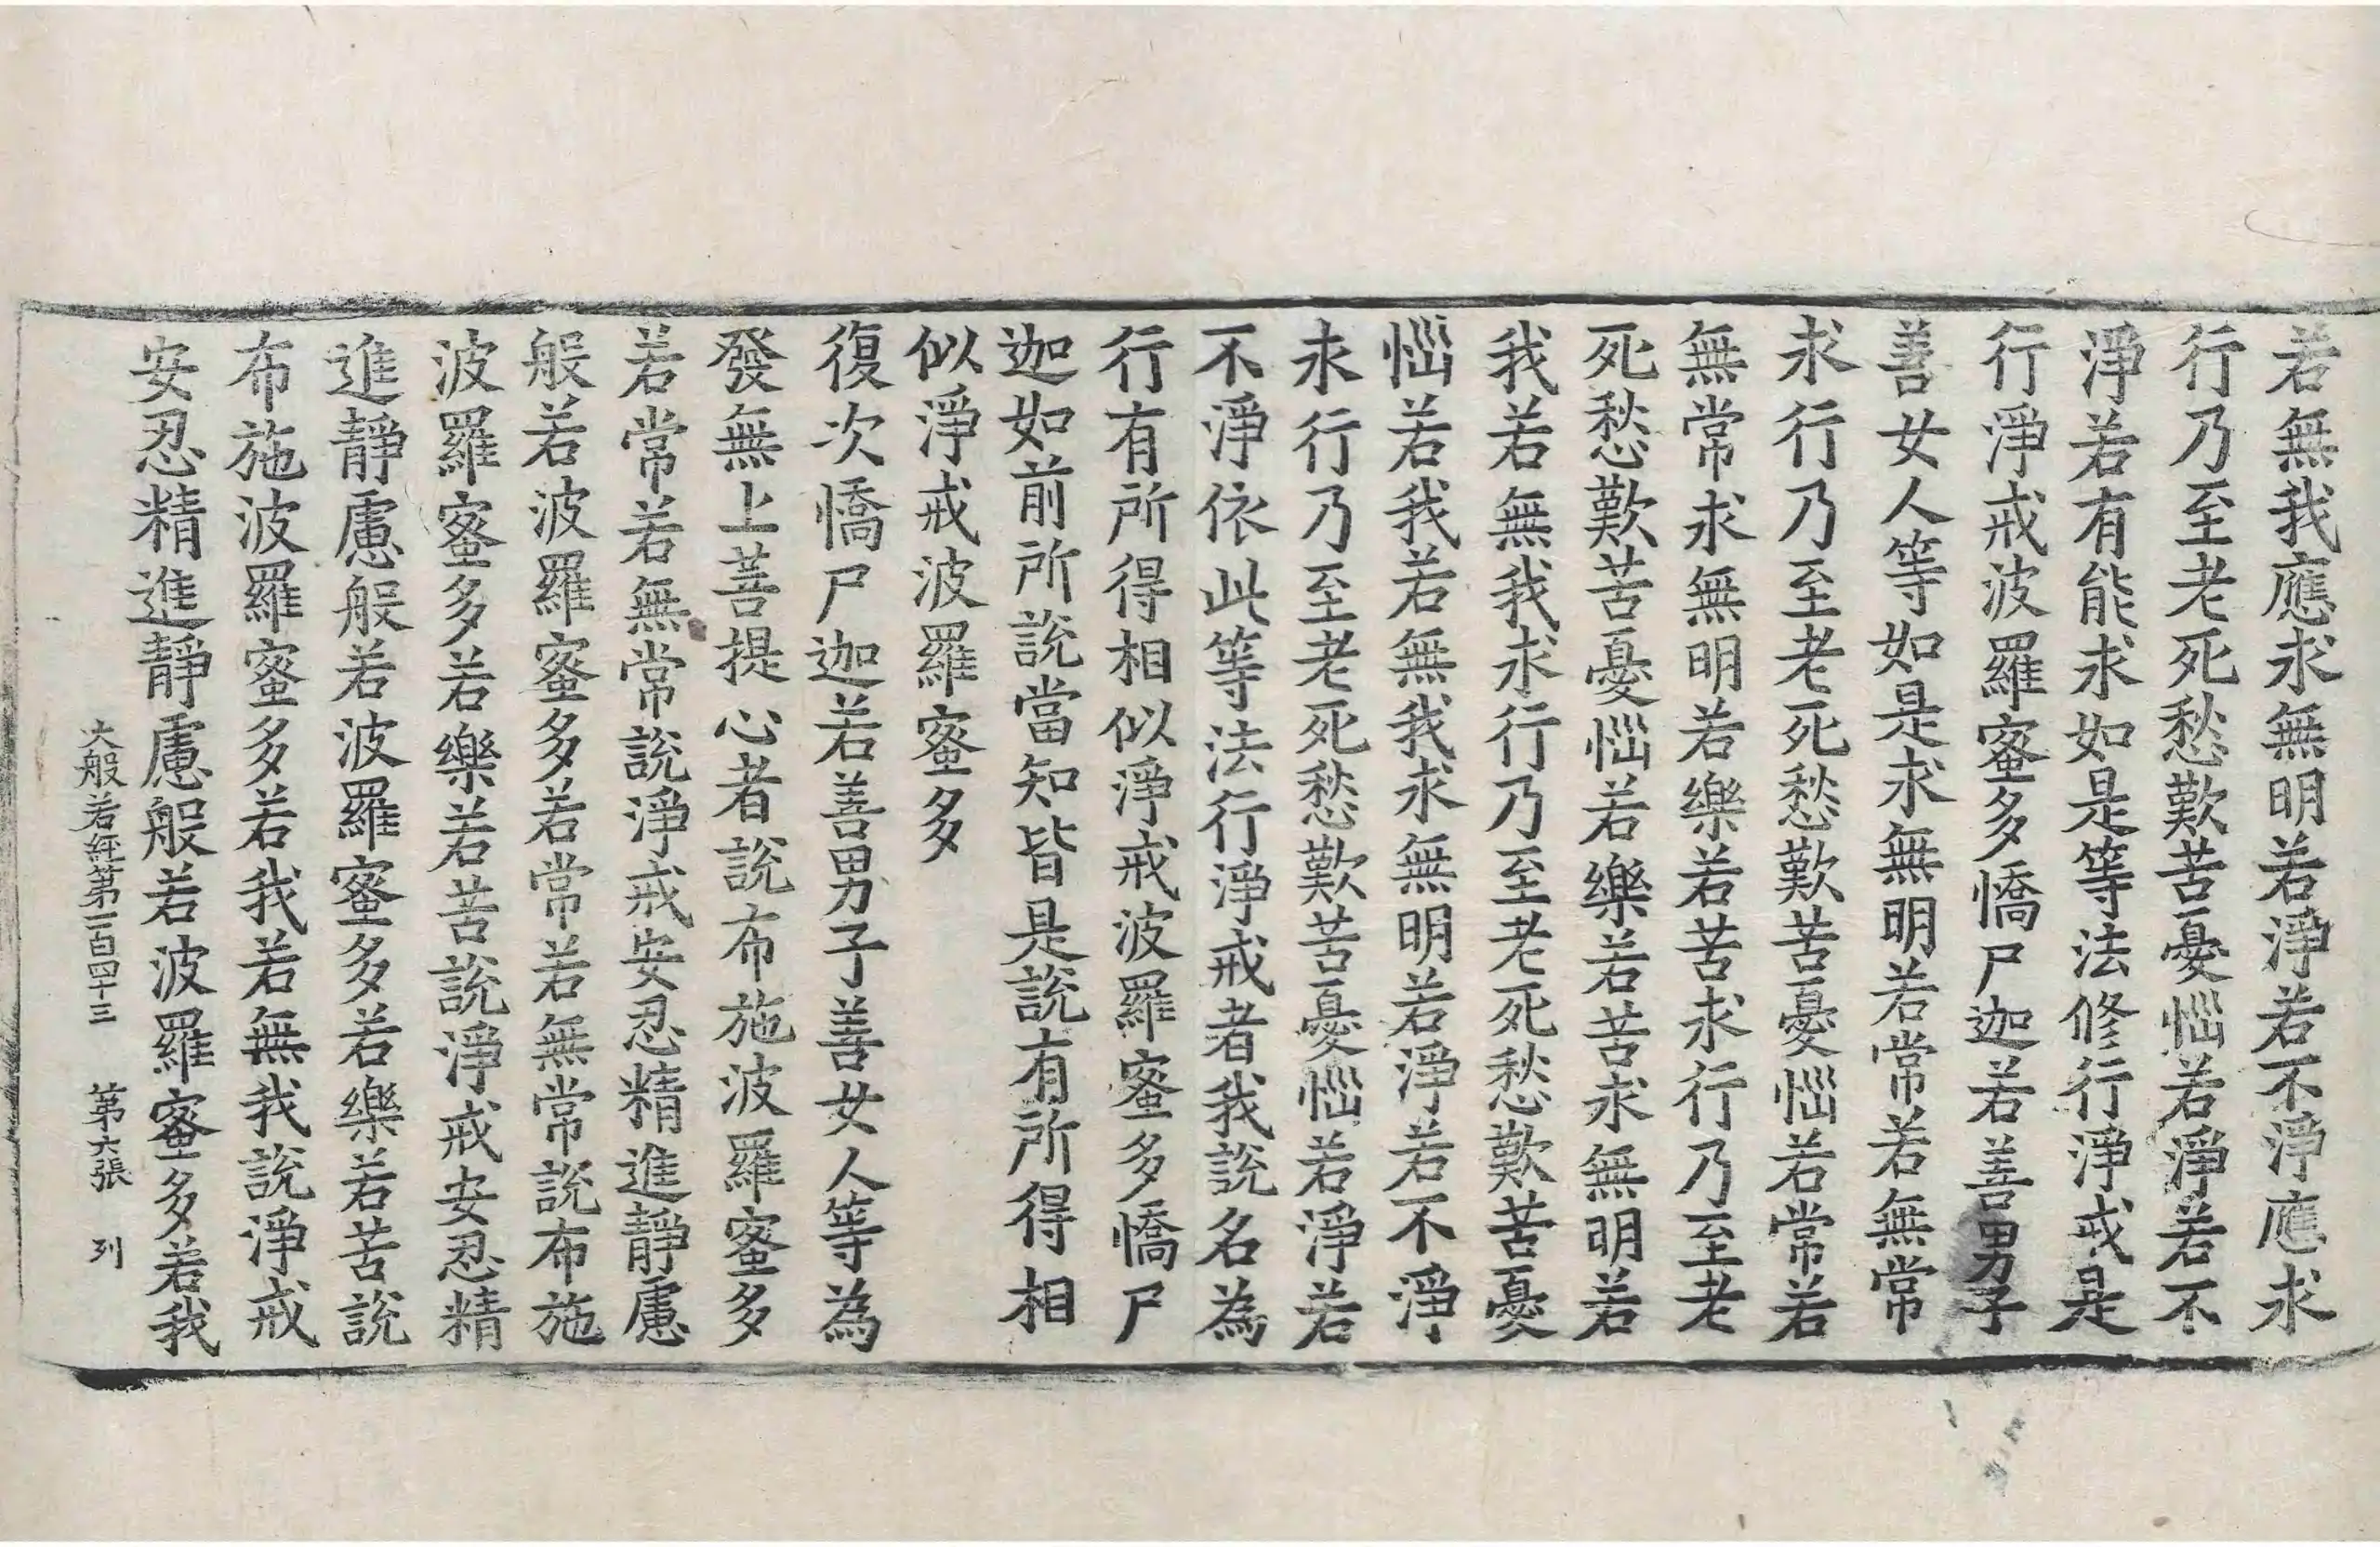 若無我應求無明若淨若不淨應求
行乃至老死愁歎苦憂惱若淨若不
淨若有能求如是等法修行淨戒是
行淨戒波羅蜜多憍尸迦若善男子
善女人等如是求無明若常若無常
求行乃至老死愁歎苦憂惱若常若
無常求無明若樂若苦求行乃至老
死愁歎苦憂惱若樂若苦求無明若
我若無我求行乃至老死愁歎苦憂
惱若我若無我求無明若淨若不淨
求行乃至老死愁歎苦憂惱若淨若
不淨依此等法行淨戒者我說名為
行有所得相似淨戒波羅蜜多憍尸
迦如前所說當知皆是說有所得相
似淨戒波羅蜜多
復次憍尸迦若善男子善女人等為
發無上菩提心者說布施波羅蜜多
若常若無常說淨戒安忍精進靜慮
般若波羅蜜多若常若無常說布施
波羅蜜多若樂若苦說淨戒安忍精
進靜慮般若波羅蜜多若樂若苦說
布施波羅蜜多若我若無我說淨戒
安忍精進靜慮般若波羅蜜多若我
大般若經第一百四十三 第六張 列